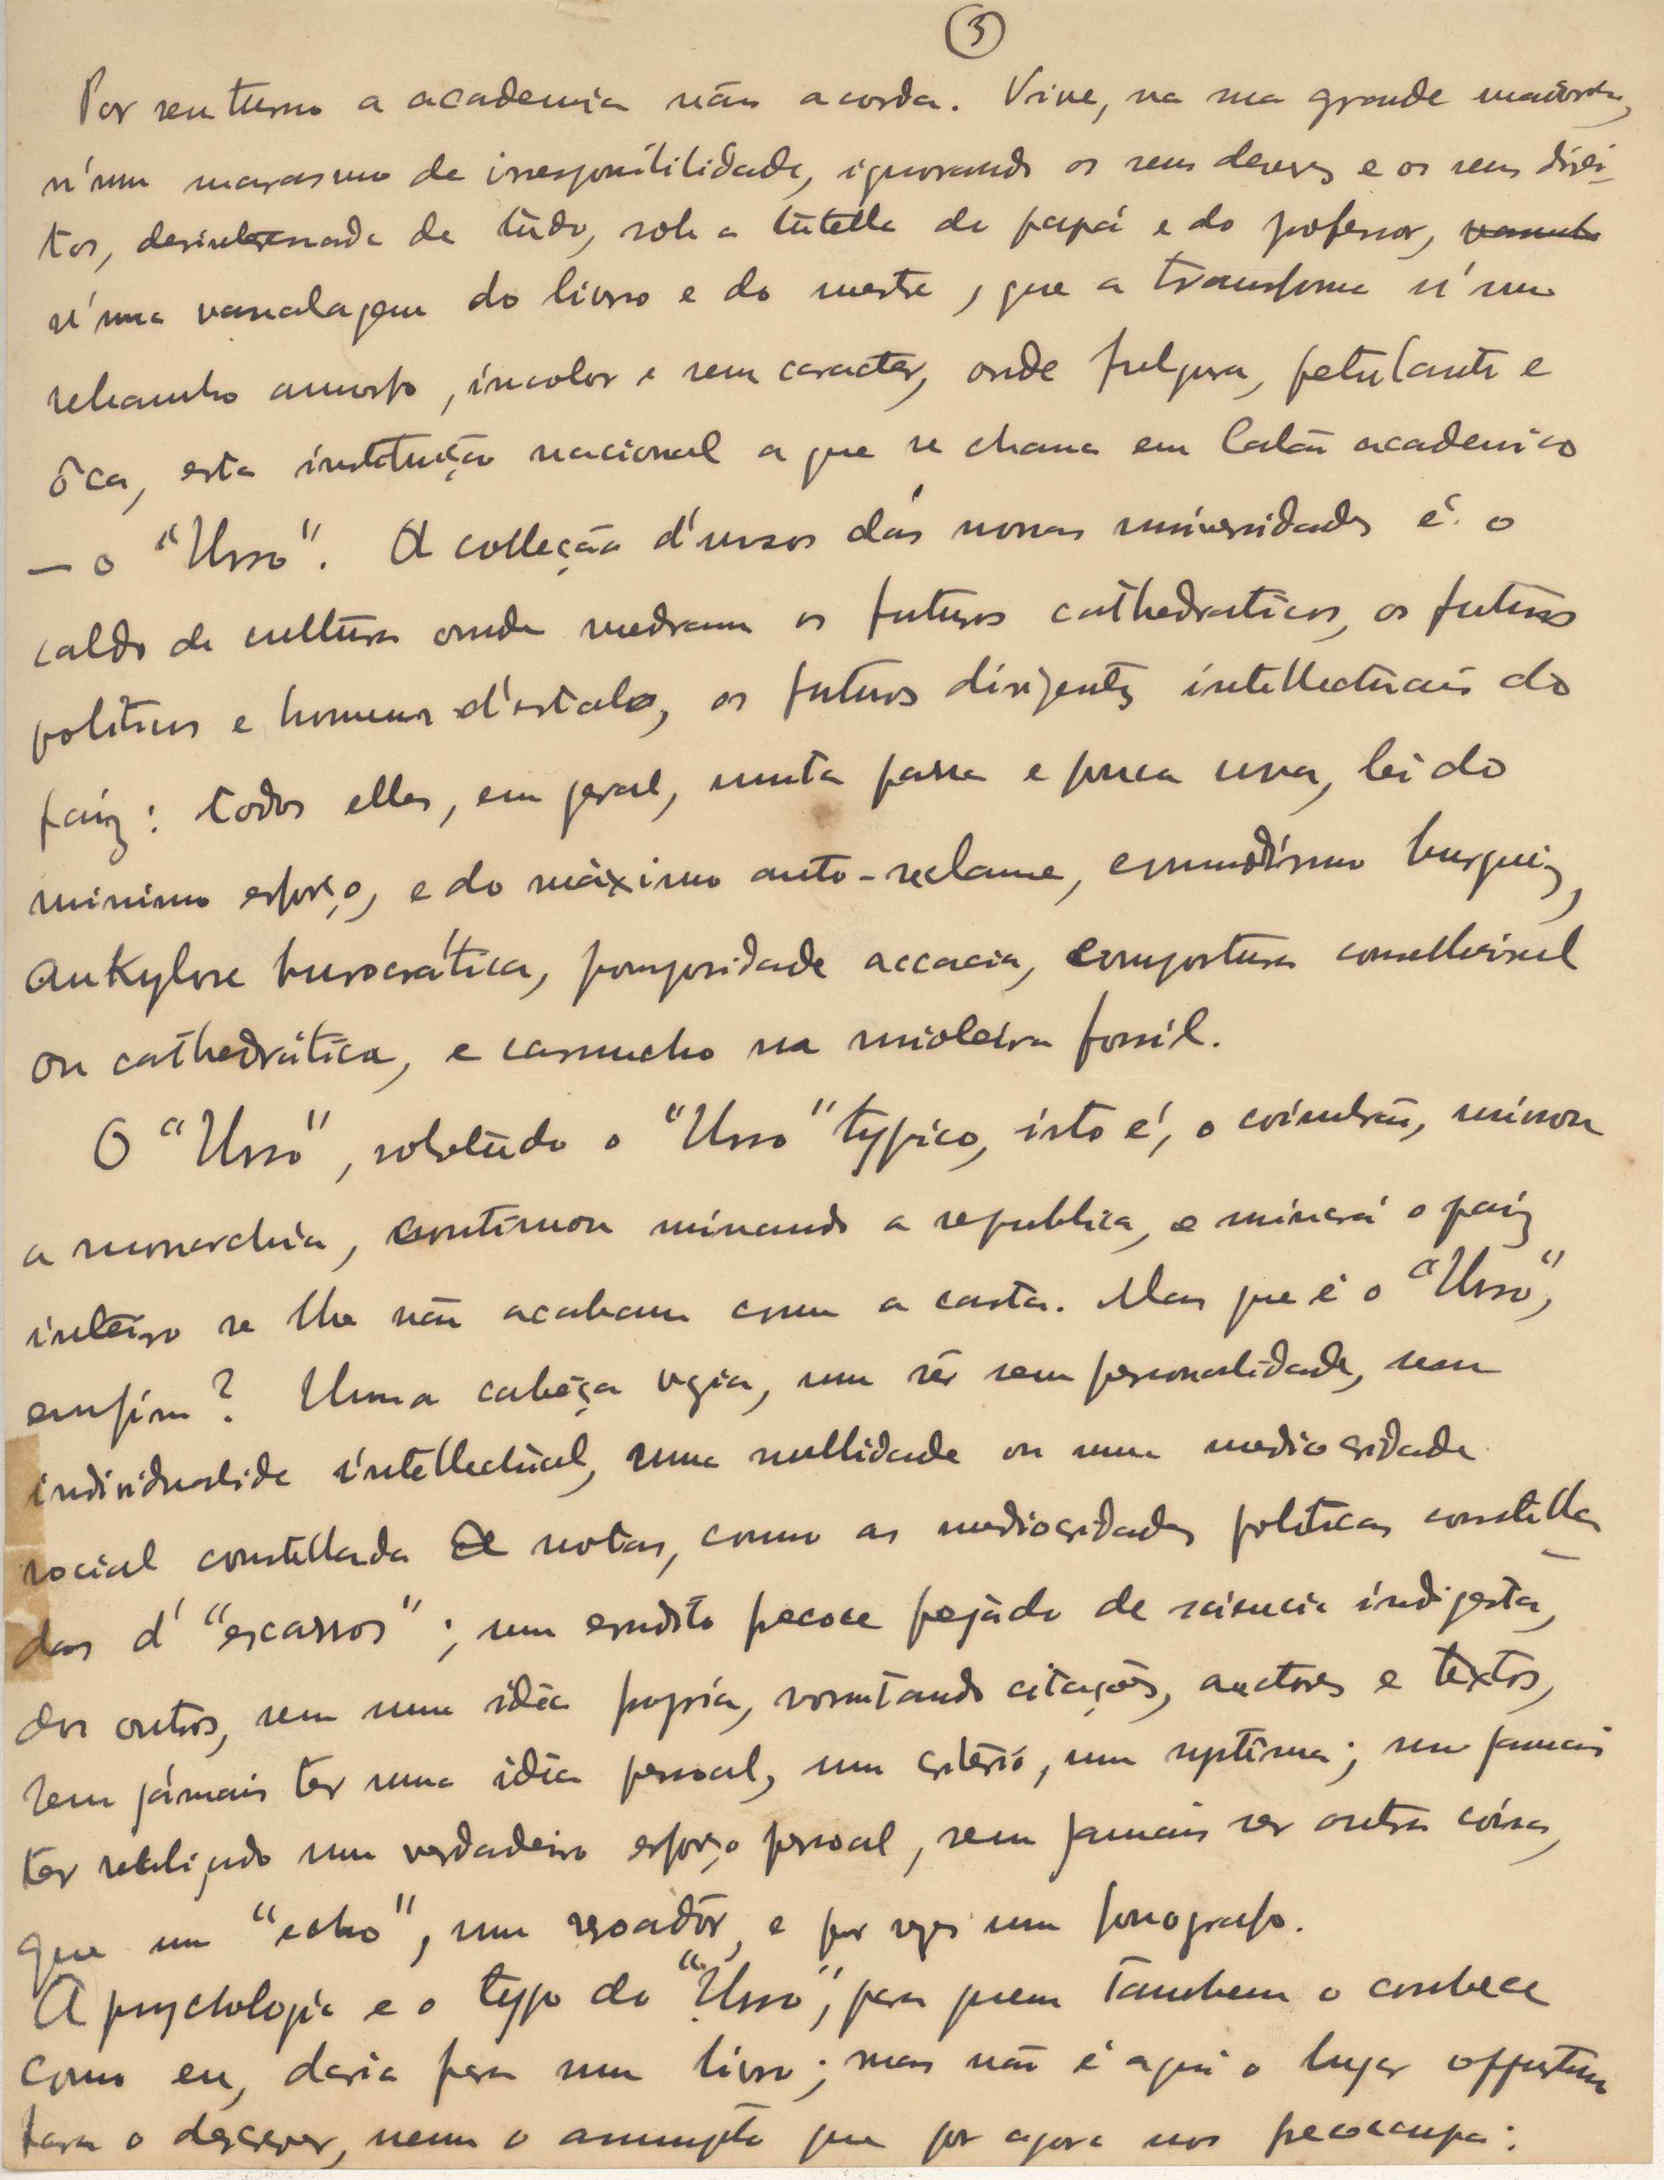 3
Por seu turno a academia não acorda. Vive, na sua grande maioria,
n'um marasmo de irresponsilidade, ignorando os seus deveres e os seus direi-
tos, desinteressada de tudo, sob a tutella do papá e do professor,
n'uma vassalagem do livro e do mestre, que a transforma n'um
rebanho amorfo, incolor e sem caracter, onde fulgura, petulante e
ôca, esta instituição nacional a que se chama em calão academico
— o "Urso". A collecção d'ursos das nossas universidades é o
caldo de cultura onde medram os futuros cathedraticos, os futuros
politicos e homens d'estado, os futuros dirigentes intellectuais do
paiz: todos elles, em geral, muita parra e pouca uva, lei do
minimo esforço, e do máximo auto-reclame, commodismo burguez,
ankylose burocrática, pomposidade accacia, compostura conselheiral
ou cathedrática, e carnucho na mioleira fossil.
O "Urso", sobretudo o "Urso" typico, isto é, o coimbrão, minou
a monarchia, continuou minando a republica, e minará o paiz
inteiro se lhe não acabam com a casta. Mas que é o "Urso",
emfim? Uma cabeça vazia, um sêr sem personalidade, sem
individualide intellectual, uma nullidade ou uma mediocridade
social constellada de notas, como as mediocridades politicas constella-
das d' "escarros"; um erudito precoce pejado de sciencia indigesta,
dos outros, sem uma idéa propria, vomitando citações, auctores e textos,
sem jámais ter uma idéa pessoal, um critério, um systema; sem jamais
ter realizado um verdadeiro esforço pessoal, sem jamais ser outra coisa,
que um "echo", um ressoadôr, e por vezes um fonografo.
A psychologia e o typo do "Urso", para quem tambem o conhece
como eu, daria para um livro; mas não é aqui o lugar opportuno
para o descrever, nem o assumpto que por agora nos preoccupa: